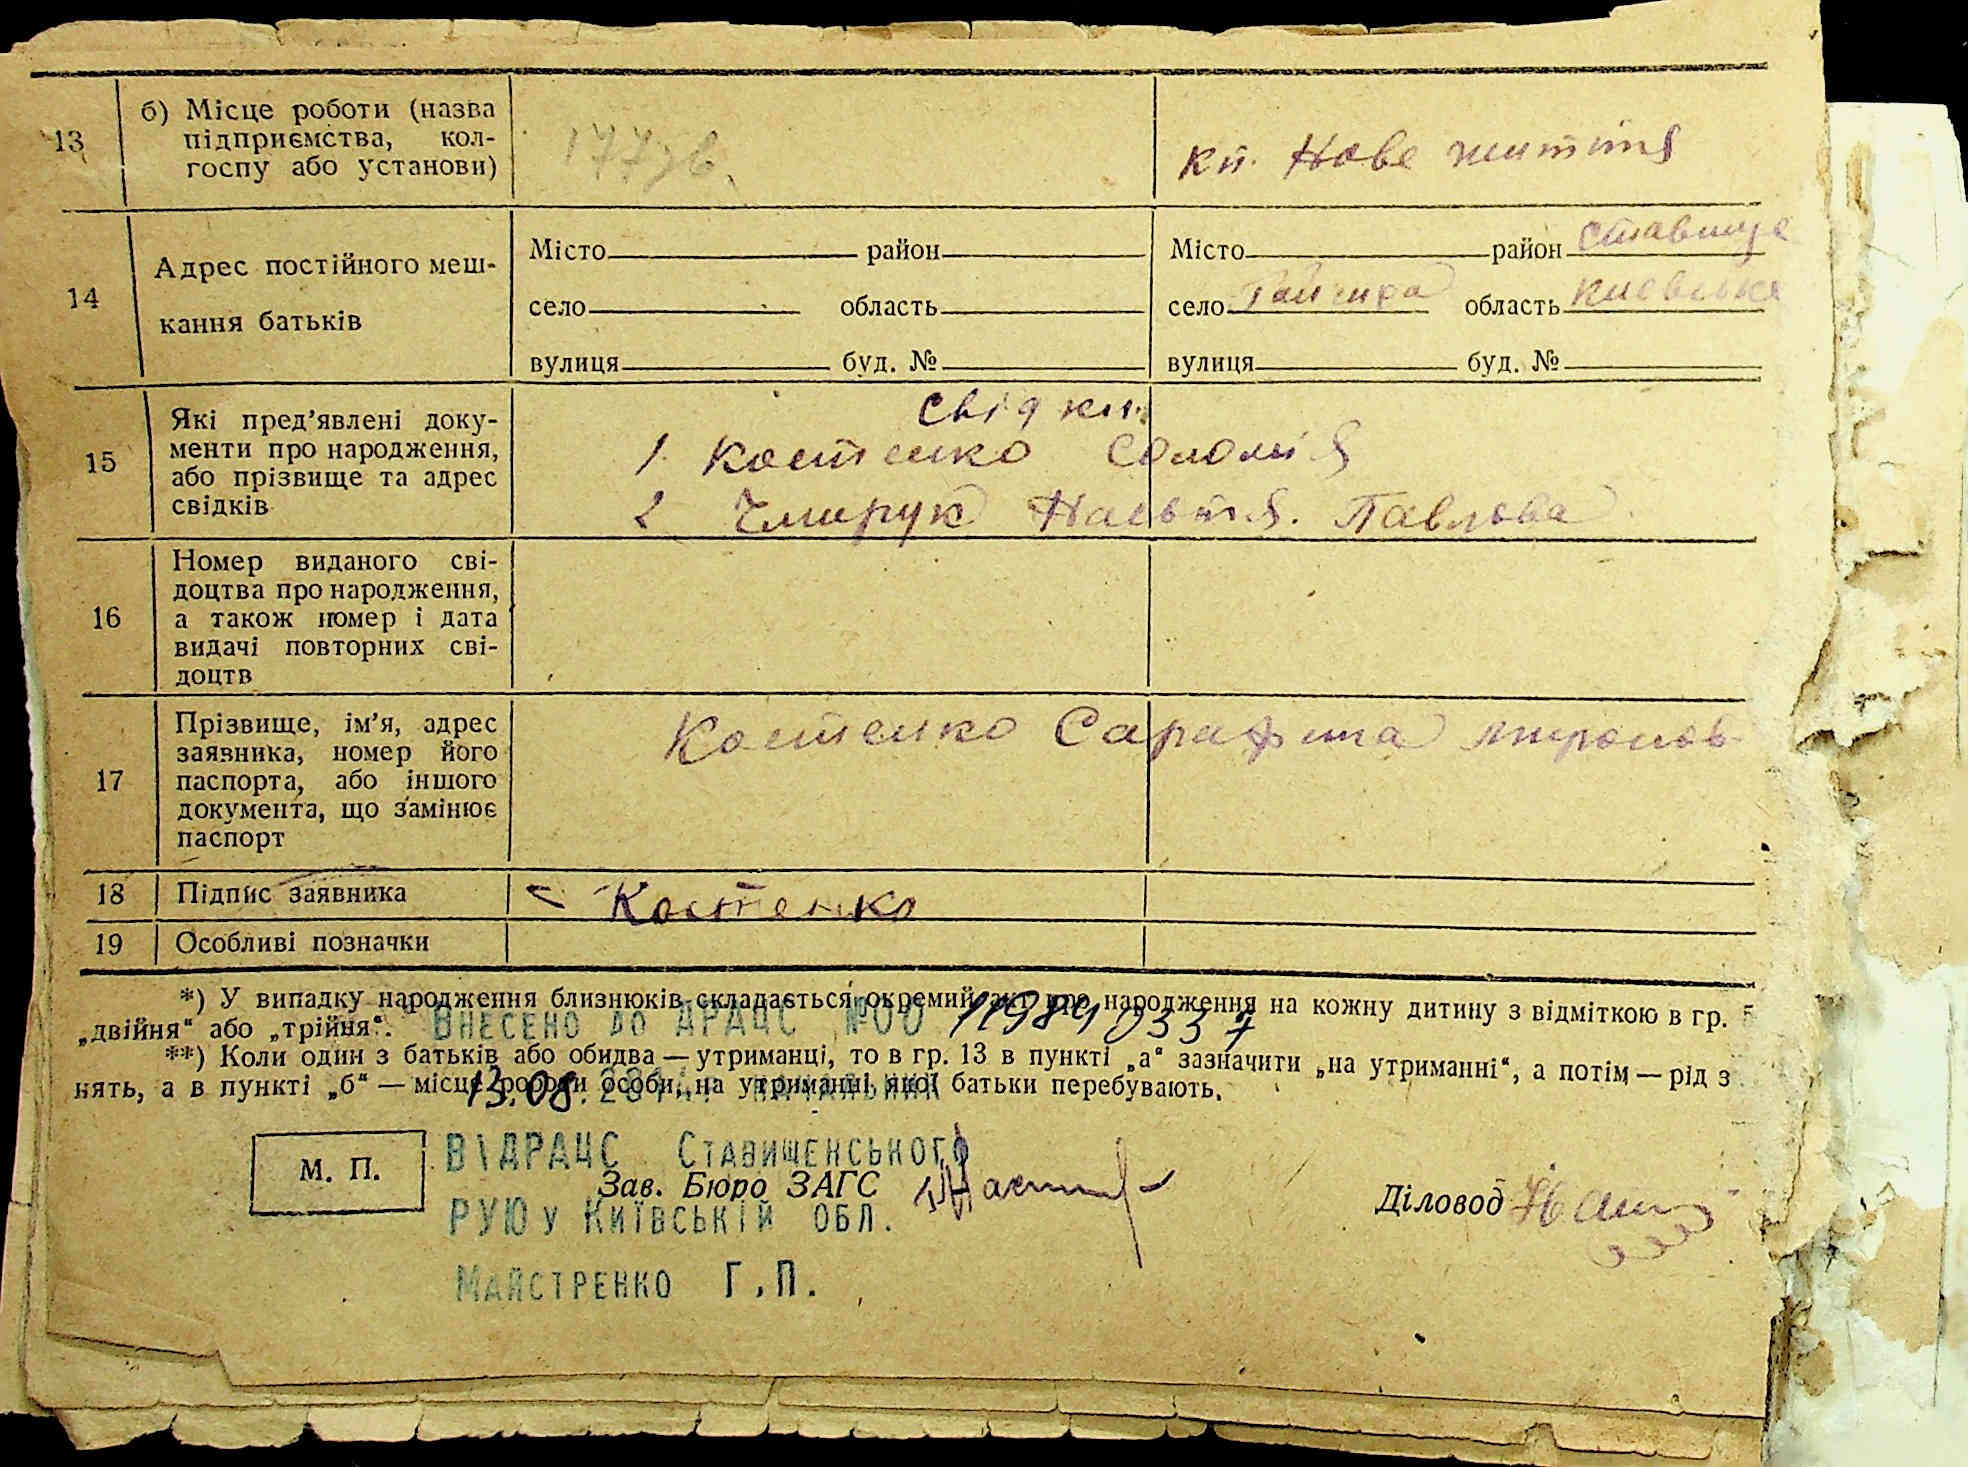 13
б) Місце роботи (назва
підприємства, кол-
госпу або установи)
кп. Нове життя
14
Адрес постійного меш-
кання батьків
Місто район
село область
вулиця буд. №
Місто район Ставище
село область Киевське
вулиця буд. №
15
Які пред'явлені доку-
менти про народження,
або прізвище та адрес
свідків
Свідки:
1. Костенко Соломія
2 Настя. Павлова
16
Номер виданого сві-
доцтва про народження,
а також номер і дата
видачі повторних сві-
доцтв
17
Прізвище, ім'я, адрес
заявника, номер його
паспорта, або іншого
документа, що замінює
паспорт
Костенко Сарафина
18
Підпис заявника
Костенко
19
Особливі позначки
*) У випадку народження близнюків складається окремий акт про народження на кожну дитину з відміткою в гр. 5
„двійня“ або „трійня“.
Внесено до ДРАЦС №00
**) Коли один з батьків або обидва — утриманці, то в гр. 13 в пункті „а“ зазначити „на утриманні“, а потім — рід з
нять, а в пункті „б“ — місце роботи особи, на утриманні якої батьки перебувають.
13.08. начальник
М. П.
ВІДРАЦС Ставищенського
Зав. Бюро ЗАГС
Діловод
РУЮ у Київській обл.
Майстренко Г.П.